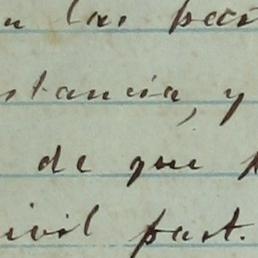 las
stancia, y
de que
ivil part.